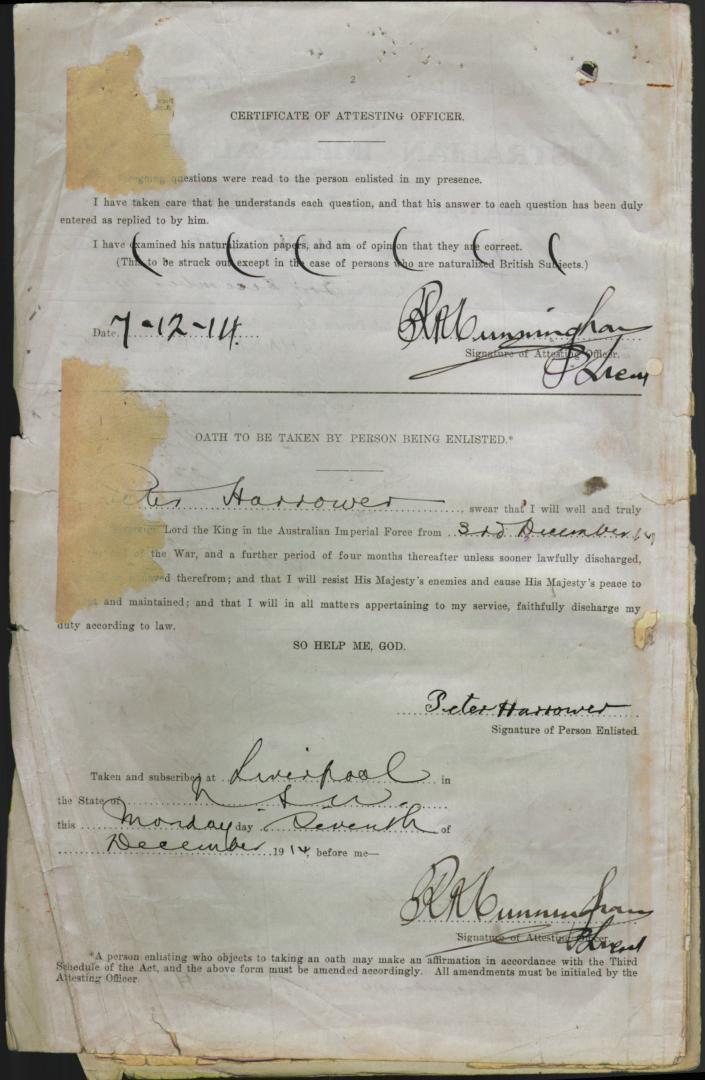 2
CERTIFICATE OF ATTESTING OFFICER.
questions were read to the person enlisted in my presence.
I have taken care that he understands each question, and that his answer to each question has been duly
entered as replied to by him.
I have examined his naturalization papers, and am of opinion that they are correct.
(This to be struck out except in the case of persons who are naturalized British Subjects.)
Date 7-12-14.
R R Cunningham
Signature of Attesting Officer.
OATH TO BE TAKEN BY PERSON BEING ENLISTED.*
Peter Harrower, swear that I will well and truly
Lord the King in the Australian Imperial Force from 3rd December 14
of the War, and a further period of four months thereafter unless sooner lawfully discharged,
therefrom; and that I will resist His Majesty's enemies and cause His Majesty's peace to
and maintained; and that I will in all matters appertaining to my service, faithfully discharge my
duty according to law.
SO HELP ME, GOD.
Peter Harrower
Signature of Person Enlisted.
Taken and subscribed at Liverpool in
the State of N S W.
this Monday day Seventh of
December 1914, before me—
R R Cunningham
Signature of Attesting Officer.
*A person enlisting who objects to taking an oath may make an affirmation in accordance with the Third
Schedule of the Act, and the above form must be amended accordingly. All amendments must be initialed by the
Attesting Officer.